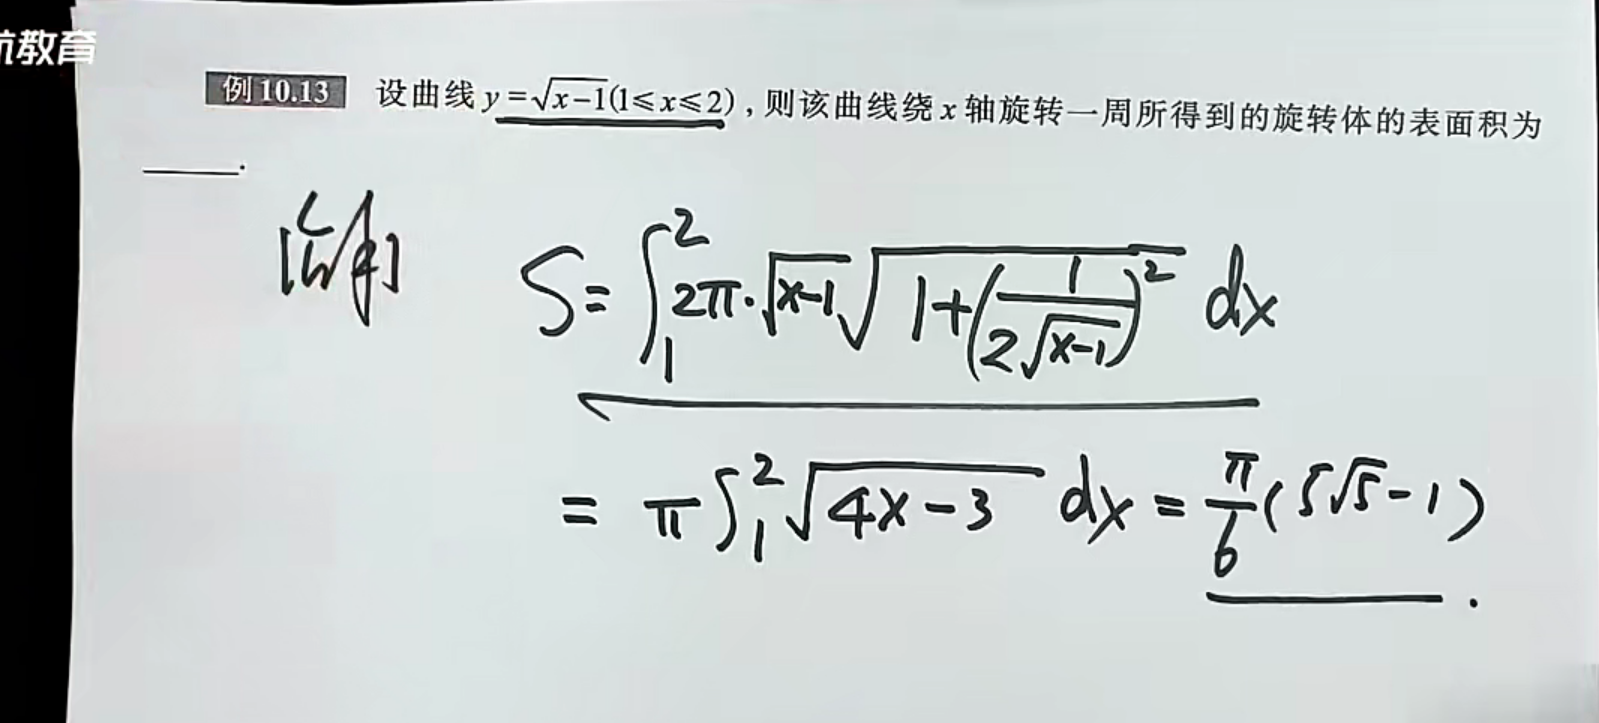 航教育
例10.13 设曲线 y=√(x-1)(1≤x≤2),则该曲线绕 x 轴旋转一周所得到的旋转体的表面积为
____.
S=∫₁² 2π·√(x-1) √(1+(1/(2√(x-1)))²) dx
= π∫₁² √(4x-3) dx = π/6 (5√5-1).